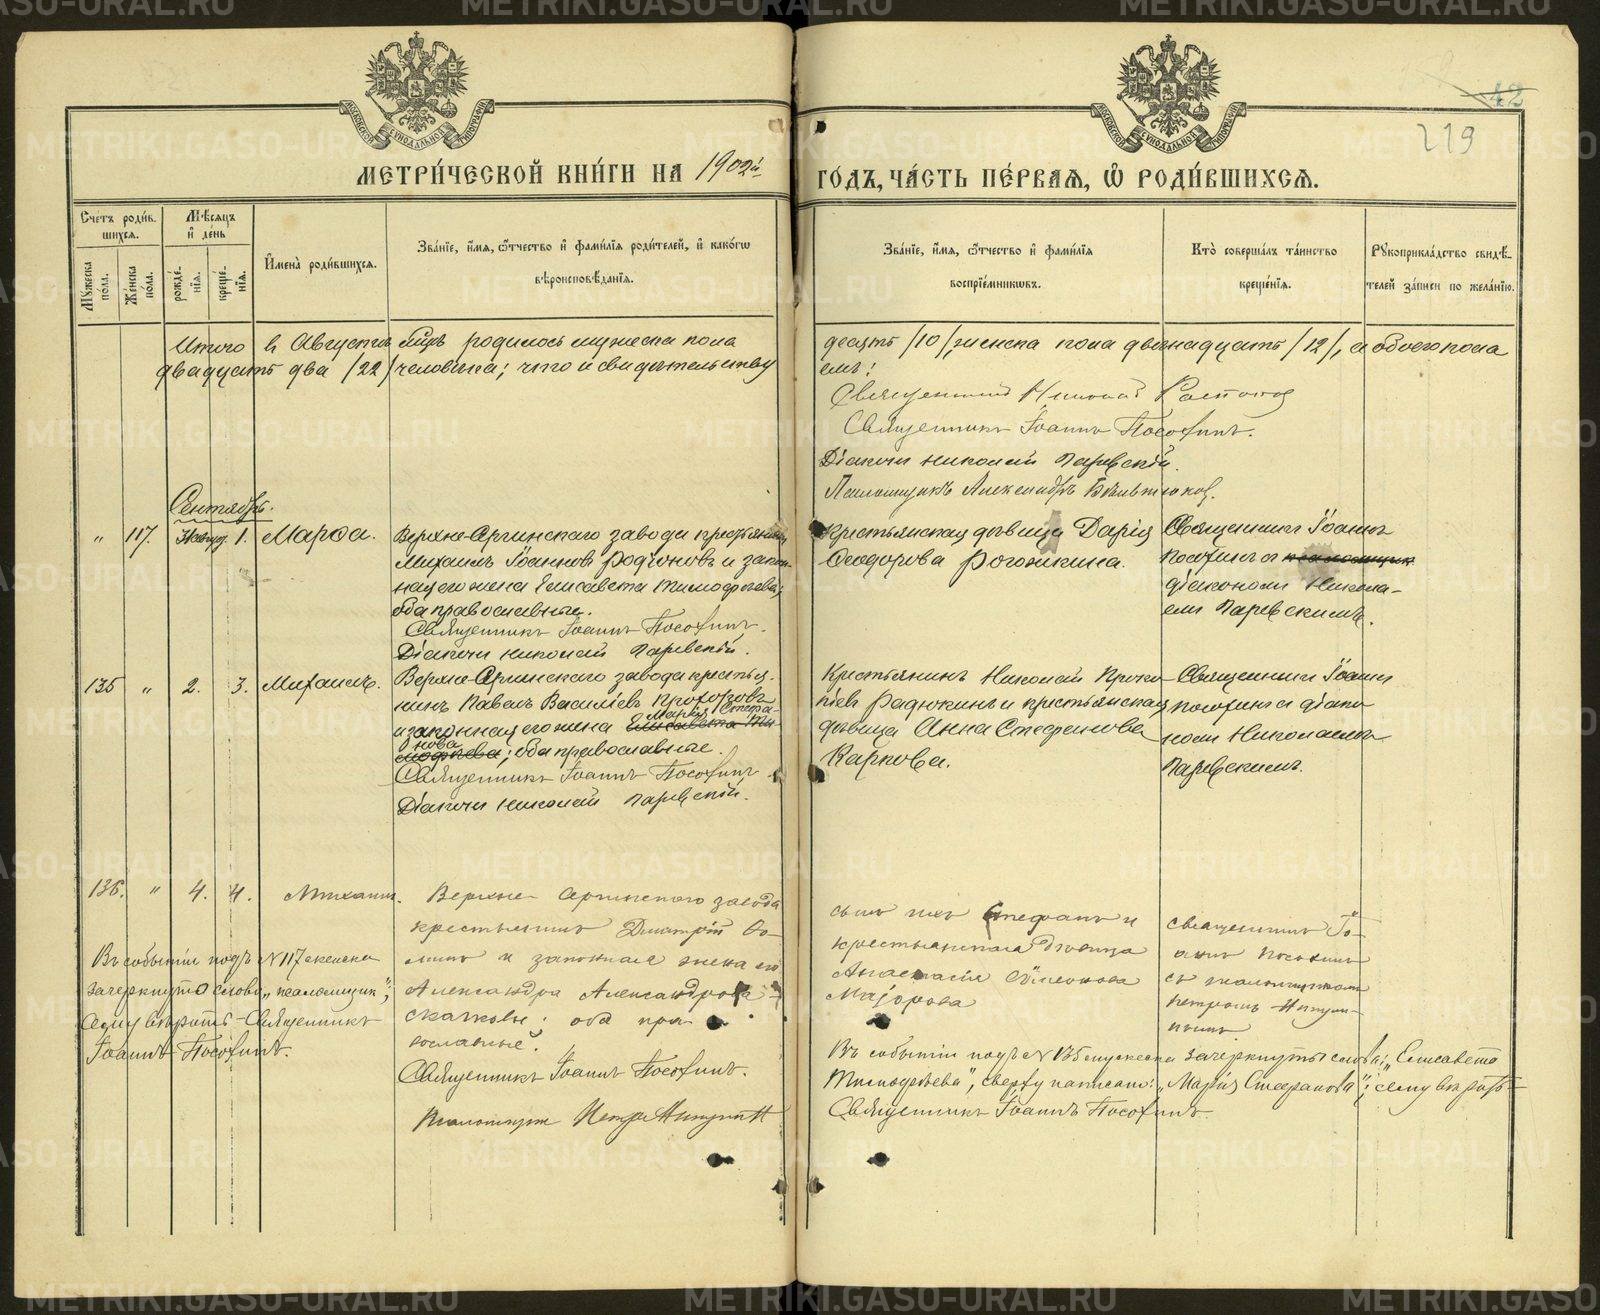 МЕТРИ́ЧЕСКОЙ КНИ́ГИ НА 1902й ГО́ДЪ, ЧА́СТЬ ПЕ́РВАЯ, Ѡ РОДИ́ВШИХСЯ.
42
219
Сче́тъ роди́вшихся.
Му́жеска по́ла.
Же́нска по́ла.
Мѣ́сяцъ и де́нь
рожде́нія.
креще́нія.
Имена̀ роди́вшихся.
Зва́ніе, и́мя, ѻ́тчество и фами́лія роди́телей, и како́гѡ
вѣроисповѣ́данія.
Зва́ніе, и́мя, ѻ́тчество и фами́лія
воспріе́мникѡвъ.
Кто̀ соверша́лъ та́инство
креще́нія.
Рукоприкла́дство свидѣ́-
телей за́писи по жела́нію.
Итого въ Августѣ мцѣ родилось мужеска пола десять /10/, женска пола двѣнадцать /12/, а обоего пола
двадцать два /22/ человѣка; что и свидѣтельству
емъ:
Священникъ Николай
Священникъ Іоаннъ Пособинъ.
Діаконъ Николай Паревскій.
Псаломщикъ Александръ
Сентябрь.
" 117. 1. Марѳа.
Верхне-Сергинскаго завода крестьянинъ
Михаилъ Іоанновъ Родіоновъ и закон-
ная его жена Елисавета Тимофѣева;
оба православные.
Священникъ Іоаннъ Пособинъ.
Діаконъ Николай Паревскій.
Крестьянская дѣвица Дарія
Ѳеодорова Рогожкина.
Священникъ Іоаннъ
Пособинъ съ псаломщик
діакономъ Никола-
емъ Паревскимъ.
135 " 2. 3. Михаилъ.
Верхне-Сергинскаго завода крестья-
нинъ Павелъ Василіевъ Прохоровъ
Марія Стефа-
и законная его жена Елисавета Ти-
нова
мофѣева; оба православные.
Священникъ Іоаннъ Пособинъ
Діаконъ Николай Паревскій.
Крестьянинъ Николай Проко-
піевъ Радюкинъ и крестьянская
дѣвица Анна Стефанова
Карпова.
Священникъ Іоаннъ
Пособинъ съ діако
номъ Николаемъ
Паревскимъ.
136. " 4. 4. Михаилъ.
Верхне-Сергинскаго завода
крестьянинъ Димитрій Ѳо-
минъ и законная жена его
Александра Александрова
оба пра-
вославные.
Священникъ Іоаннъ Пособинъ.
Псаломщикъ Петръ
сынъ ихъ Стефанъ и
крестьянская дѣвица
Анастасія Сѵмеонова
Маіорова
священникъ Іо-
аннъ Пособинъ
съ псаломщикомъ
Петромъ
Въ событіи подъ № 117 женска
зачеркнуто слово „псаломщик";
сему вѣрить - Священникъ
Іоаннъ Пособинъ.
Въ событіи подъ № 135 мужеска зачеркнуты слова: „Елисавета
Тимофѣева", сверху написано: „Марія Стефанова"; сему вѣрить-
Священникъ Іоаннъ Пособинъ.
METRIKI.GASO-URAL.RU